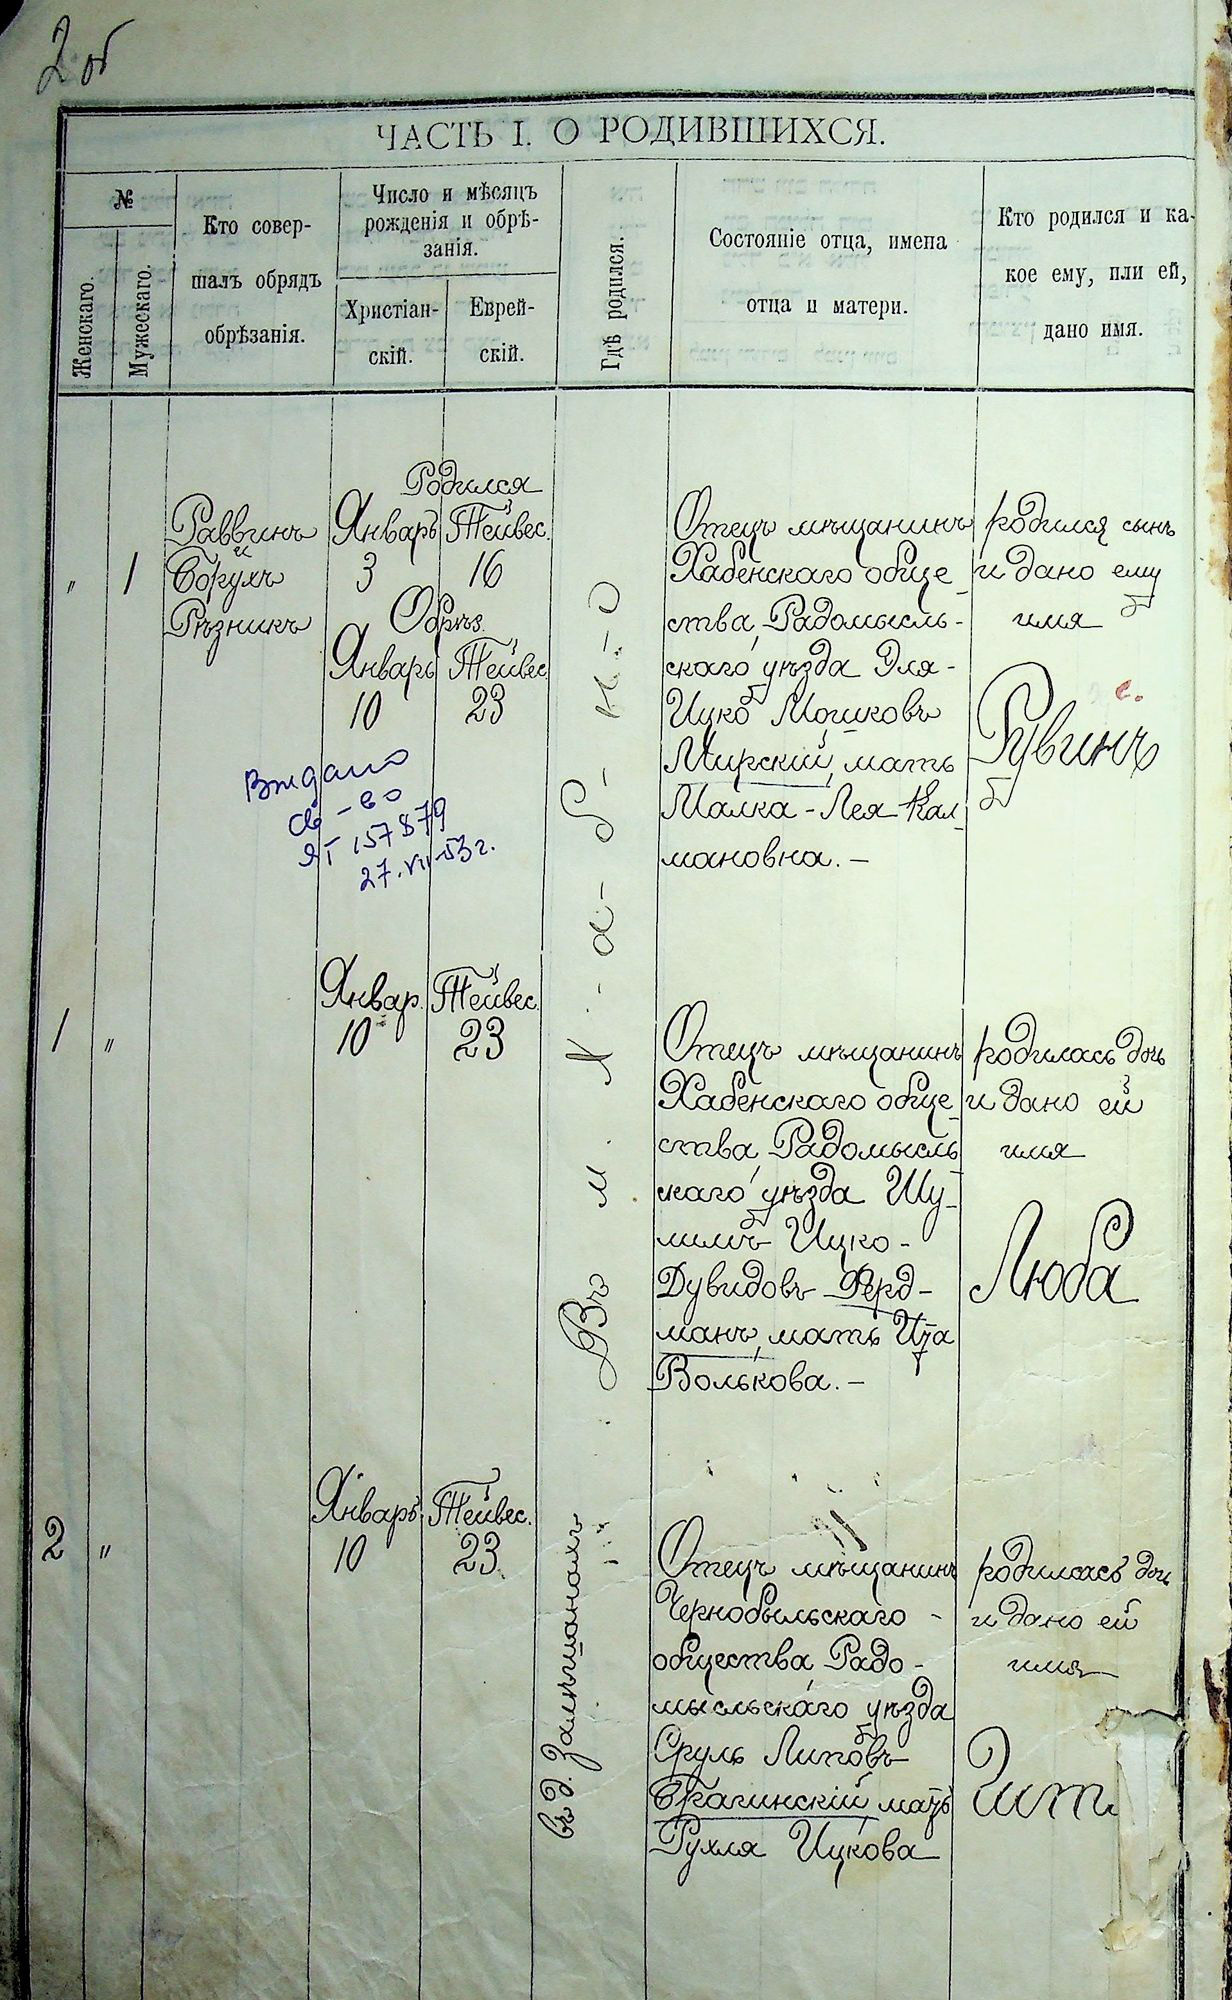 2 об
ЧАСТЬ I. О РОДИВШИХСЯ.
№
Женскаго.
Мужескаго.
Кто совер-
шалъ обрядъ
обрѣзанія.
Число и мѣсяцъ
рожденія и обрѣ-
занія.
Христіан-
скій.
Еврей-
скій.
Гдѣ родился.
Состояніе отца, имена
отца и матери.
Кто родился и ка-
кое ему, или ей,
дано имя.
"
1
Раввинъ
и
Борухъ
Рѣзникъ
Родился
Январь Тейвес.
3 16
Обрѣз.
Январь Тейвес
10 23
Въ м. Х-а-б-н-о
Отецъ мѣщанинъ
Хабенскаго обще-
ства, Радомысль-
скаго уѣзда Эля-
Ицко Мошковъ
Мирскій, мать
Малка-Лея Кал-
мановна.-
родился сынъ
и дано ему
имя
Рувинъ
с.
Выдано
св-во
ЯТ 157879
27.VII-53г.
1 "
Январ. Тейвес.
10 23
Отецъ мѣщанинъ
Хабенскаго обще-
ства, Радомысль
скаго уѣзда Шу-
лимъ Ицко-
Дувидовъ Ферд-
манъ, мать Ита
Волькова.-
родилась дочь
и дано ей
имя
Люба
2 "
Январь Тейвес.
10 23
въ д.
Отецъ мѣщанинъ
Чернобыльскаго -
общества, Радо-
мысльскаго уѣзда
Сруль Липовъ
Брагинскій, мать
Рухля Ицкова
родилась дочь
и дано ей
имя